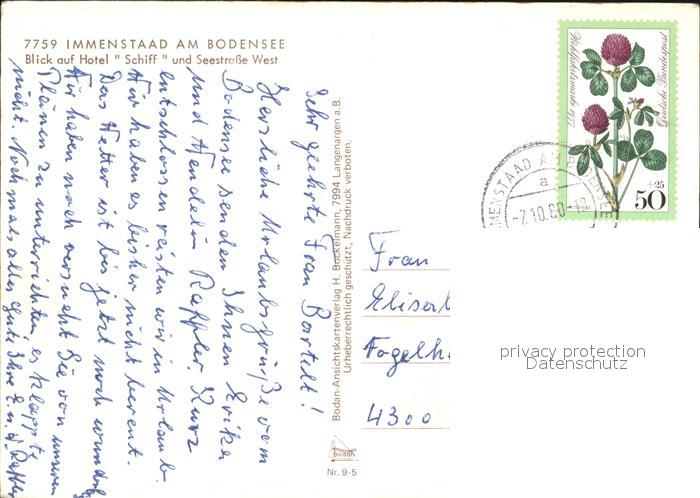 7759 IMMENSTAAD AM BODENSEE
Blick auf Hotel " Schiff " und Seestraße West
Sehr geehrte Frau Bartelt!
Herzliche Urlaubsgrüße vom
Bodensee senden Ihnen Erika
und Wendelin Rappler. Kurz
entschlossen reisten wir in Urlaub.
Wir haben es bisher nicht bereut.
Das Wetter ist bis jetzt noch wunderb
Wir haben noch versucht Sie von unseren
Plänen zu unterrichten, es klappte
nicht. Nochmals alles Gute Ihre E. u. W. Rappler
Bodan-Ansichtskartenverlag H. Bockelmann, 7994 Langenargen a.B.
Urheberrechtlich geschützt, Nachdruck verboten.
bodan
Nr. 9-5
Wiesenklee
Deutsche Bundespost
+25
50
IMMENSTAAD AM BODENSEE
a
-7.10.80-10
Frau
Eliser
Vogelh
4300
privacy protection
Datenschutz